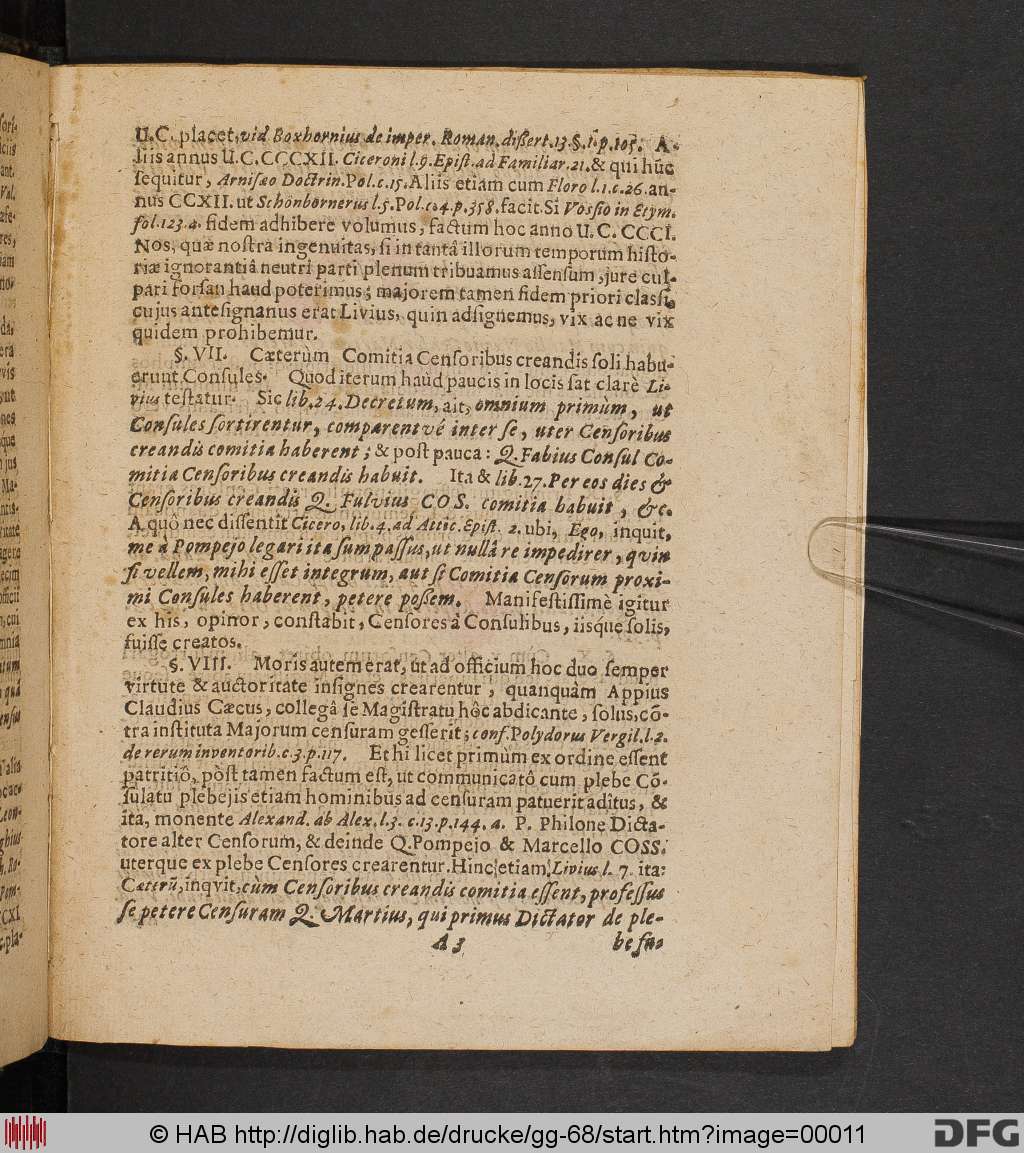 U.C. placet, vid Boxhornius de imper. Roman. dißert. 13. §. 1. p. 105. A-
liis annus U.C. CCCXII. Ciceroni l. 9. Epist. ad Familiar. 21. & qui hûc
sequitur, Arnisæo Doctrin. Pol. c. 15. Aliis etiam cum Floro l. 1. c. 26. an-
nus CCXII. ut Schönbornerus l. 5. Pol. c. 4. p. 358. facit. Si Vossio in Etym.
fol. 123. a. fidem adhibere volumus, factum hoc anno U.C. CCCI.
Nos, quæ nostra ingenuitas, si in tantâ illorum temporum histo-
riæ ignorantiâ neutri parti plenum tribuamus assensum, jure cul-
pari forsan haud poterimus; majorem tamen fidem priori classi,
cujus antesignanus erat Livius, quin adsignemus, vix ac ne vix
quidem prohibemur.
§. VII. Cæterùm Comitia Censoribus creandis soli habu-
erunt Consules. Quod iterum haùd paucis in locis sat clarè Li-
vius testatur. Sic lib. 24. Decretum, ait, omnium primùm, ut
Consules sortirentur, comparentvé inter se, uter Censoribus
creandis comitia haberent; & post pauca: Q. Fabius Consul Co-
mitia Censoribus creandis habuit. Ita & lib. 27. Per eos dies &
Censoribus creandis Q. Fulvius COS. comitia habuit, &c.
A quô nec dissentit Cicero, lib. 4. ad Attic. Epist. 2. ubi, Ego, inquit,
me à Pompejo legari ita sum passus, ut nullâ re impedirer, qvin
si vellem, mihi esset integrum, aut si Comitia Censorum proxi-
mi Consules haberent, petere poßem. Manifestissimè igitur
ex his, opinor, constabit, Censores à Consulibus, iisque solis,
fuisse creatos.
§. VIII. Moris autem erat, ut ad officium hoc duo semper
virtute & auctoritate insignes crearentur, quanquàm Appius
Claudius Cæcus, collegâ se Magistratu hôc abdicante, solus, cõ-
tra instituta Majorum censuram gesserit; conf. Polydorus Vergil. l. 2.
de rerum inventorib. c. 3. p. 117. Et hi licet primùm ex ordine essent
patritiô, pòst tamen factum est, ut communicatô cum plebe Cõ-
sulatu plebejis etiam hominibus ad censuram patuerit aditus, &
ita, monente Alexand. ab Alex. l. 3. c. 13. p. 144. a. P. Philone Dicta-
tore alter Censorum, & deinde Q. Pompejo & Marcello COSS.
uterque ex plebe Censores crearentur. Hinc etiam Livius l. 7. ita:
Cæterũ, inqvit, cùm Censoribus creandis comitia essent, professus
se petere Censuram Q. Martius, qui primus Dictator de ple-
A 3 be fuo
© HAB http://diglib.hab.de/drucke/gg-68/start.htm?image=00011
DFG